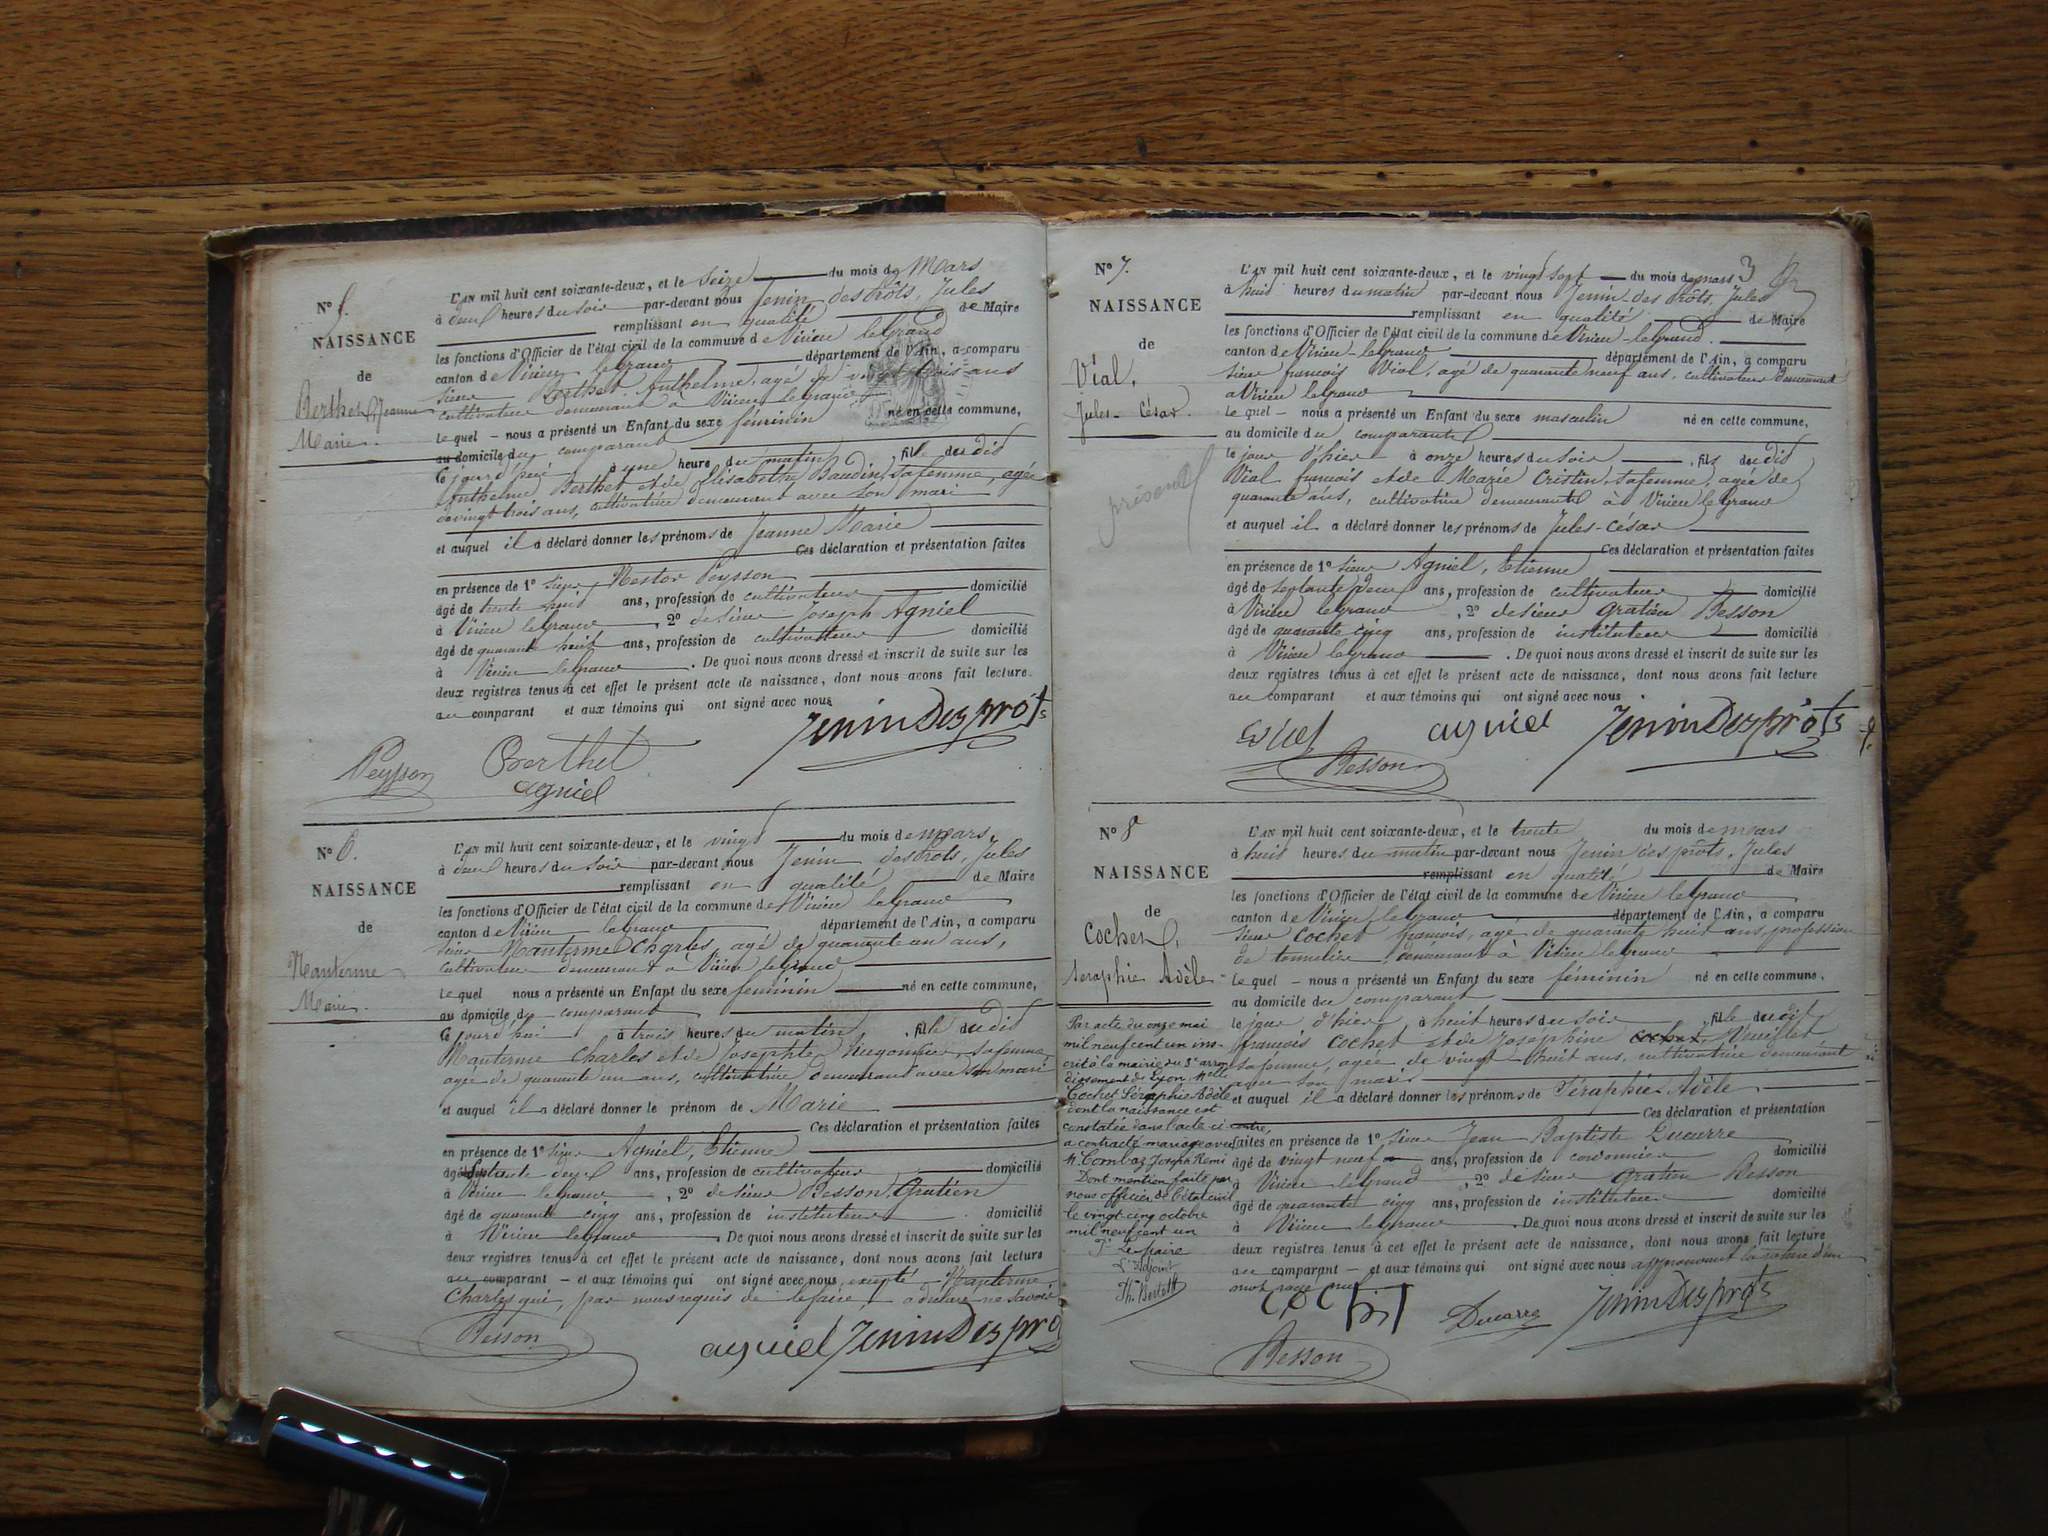 N° 5.
NAISSANCE
de
Berthet, Jeanne
Marie.
L'AN mil huit cent soixante-deux, et le seize du mois de Mars
à deux heures du soir par-devant nous Jenin desprôts, Jules
remplissant en qualité de Maire
les fonctions d'Officier de l'état civil de la commune de Virieu legrand
canton de Virieu legrand département de l'Ain, a comparu
sieur Berthet Anthelme, agé de vingt trois ans
cultivateur demeurant à Virieu legrand
Le quel nous a présenté un Enfant du sexe féminin né en cette commune,
au domicile du comparant
Ce jourd'hui à une heure du matin, fille du dit
Anthelme Berthet et de Elisabethe Baudin, sa femme, agée
de vingt trois ans, cultivatrice demeurant avec son mari
et auquel il a déclaré donner les prénoms de Jeanne Marie
Ces déclaration et présentation faites
en présence de 1° sieur Nestor Peysson
âgé de trente huit ans, profession de cultivateur domicilié
à Virieu legrand, 2° de sieur Joseph Agniel
âgé de quarante huit ans, profession de cultivateur domicilié
à Virieu legrand. De quoi nous avons dressé et inscrit de suite sur les
deux registres tenus à cet effet le présent acte de naissance, dont nous avons fait lecture
au comparant et aux témoins qui ont signé avec nous
Jenin Desprôts
Peysson Berthet
agniel
N° 6.
NAISSANCE
de
Nanterme
Marie.
L'AN mil huit cent soixante-deux, et le vingt du mois de mars,
à deux heures du soir par-devant nous Jenin desprôts, Jules
remplissant en qualité de Maire
les fonctions d'Officier de l'état civil de la commune de Virieu legrand
canton de Virieu legrand département de l'Ain, a comparu
sieur Nanterme Charles, agé de quarante un ans,
cultivateur demeurant à Virieu legrand
Le quel nous a présenté un Enfant du sexe feminin né en cette commune,
au domicile du comparant
Ce jourd'hui à trois heures du matin, fille du dit
Nanterme Charles et de Josephte sa femme
agée de quarante un ans, cultivatrice demeurant avec son mari
et auquel il a déclaré donner le prénom de Marie
Ces déclaration et présentation faites
en présence de 1° sieur Agniel, Etienne
âgé ans, profession de cultivateur domicilié
à Virieu legrand, 2° de sieur Besson, Gratien
âgé de quarante cinq ans, profession de instituteur domicilié
à Virieu legrand. De quoi nous avons dressé et inscrit de suite sur les
deux registres tenus à cet effet le présent acte de naissance, dont nous avons fait lecture
au comparant et aux témoins qui ont signé avec nous, excepté Nanterme
Charles qui, par nous requis de le faire, a déclaré ne savoir
Besson agniel Jenin Desprô
3
N° 7.
NAISSANCE
de
Vial,
Jules-César.
L'AN mil huit cent soixante-deux, et le vingt sept du mois de mars
à huit heures du matin par-devant nous Jenin des prôts, Jules
remplissant en qualité de Maire
les fonctions d'Officier de l'état civil de la commune de Virieu-legrand.
canton de Virieu-legrand département de l'Ain, a comparu
sieur françois Vial, agé de quarante neuf ans, cultivateur demeurant
à Virieu legrand
Le quel nous a présenté un Enfant du sexe masculin né en cette commune,
au domicile du comparant
le jour d'hier à onze heures du soir, fils du dit
Vial françois et de Marie Cristin, sa femme, agée de
quarante ans, cultivatrice demeurante à Virieu le Grand
et auquel il a déclaré donner les prénoms de Jules-César
Ces déclaration et présentation faites
en présence de 1° sieur Agniel, Etienne
âgé de septante deux ans, profession de cultivateur domicilié
à Virieu legrand, 2° de sieur Gratien Besson
âgé de quarante cinq ans, profession de instituteur domicilié
à Virieu legrand. De quoi nous avons dressé et inscrit de suite sur les
deux registres tenus à cet effet le présent acte de naissance, dont nous avons fait lecture
au comparant et aux témoins qui ont signé avec nous.
agniel Jenin Desprôts
Besson
N° 8
NAISSANCE
de
Cochet,
Seraphie Adèle
Par acte du onze mai
mil neuf cent un ins-
crit à la mairie du 3e arron
dissement de Lyon Melle
Cochet Séraphie Adèle
dont la naissance est
constatée dans l'acte ci-contre,
a contracté mariage avec
Mr Combaz Joseph Remi
Dont mention faite par
nous officier de l'état civil
le vingt-cinq octobre
mil neuf cent un
Pr Le Maire
L'Adjoint
L'AN mil huit cent soixante-deux, et le trente du mois de mars
à huit heures du matin par-devant nous Jenin des prôts, Jules
remplissant en qualité de Maire
les fonctions d'Officier de l'état civil de la commune de Virieu legrand
canton de Virieu legrand département de l'Ain, a comparu
sieur Cochet françois, agé de quarante huit ans, profession
de tonnelier, demeurant à Virieu legrand
Le quel nous a présenté un Enfant du sexe féminin né en cette commune.
au domicile du comparant
le jour d'hier à huit heures du soir, fille du dit
françois Cochet et de Joséphine Cochet Vuillet
sa femme, agée de vingt huit ans, cultivatrice demeurant
avec son mari
et auquel il a déclaré donner les prénoms de Séraphie Adèle
Ces déclaration et présentation
faites en présence de 1° sieur Jean Baptiste Ducarre
âgé de vingt neuf ans, profession de cordonnier domicilié
à Virieu legrand, 2° de sieur Gratien Besson
âgé de quarante cinq ans, profession de instituteur domicilié
à Virieu legrand. De quoi nous avons dressé et inscrit de suite sur les
deux registres tenus à cet effet le présent acte de naissance, dont nous avons fait lecture
au comparant et aux témoins qui ont signé avec nous approuvant la rature d'un
mot rayé nul
cochet Ducarre Jenin Desprôts
Besson